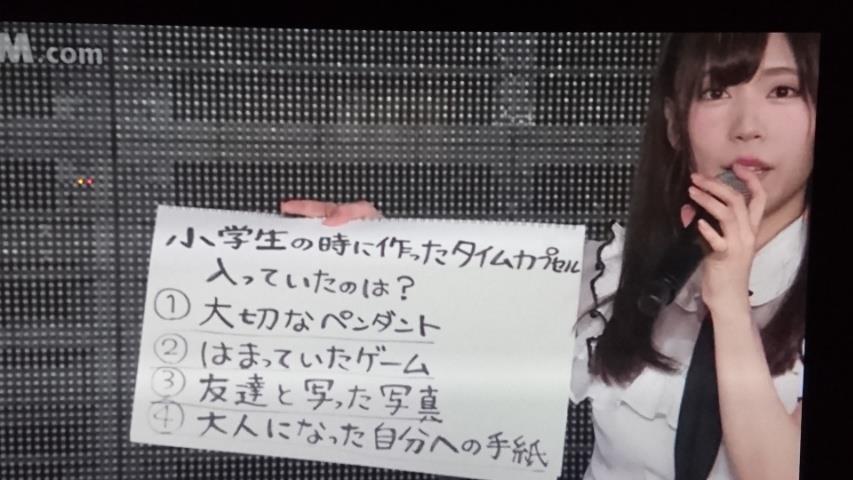 M.com
小学生の時に作ったタイムカプセル
入っていたのは？
① 大切なペンダント
② はまっていたゲーム
③ 友達と写った写真
④ 大人になった自分への手紙